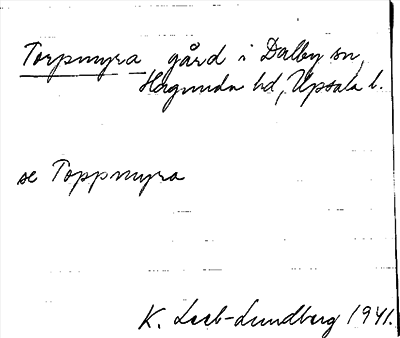 Torpmyra gård i Dalby sn,
Hagunda hd, Upsala l.
se Toppmyra
K. Leeb-Lundberg 1941.